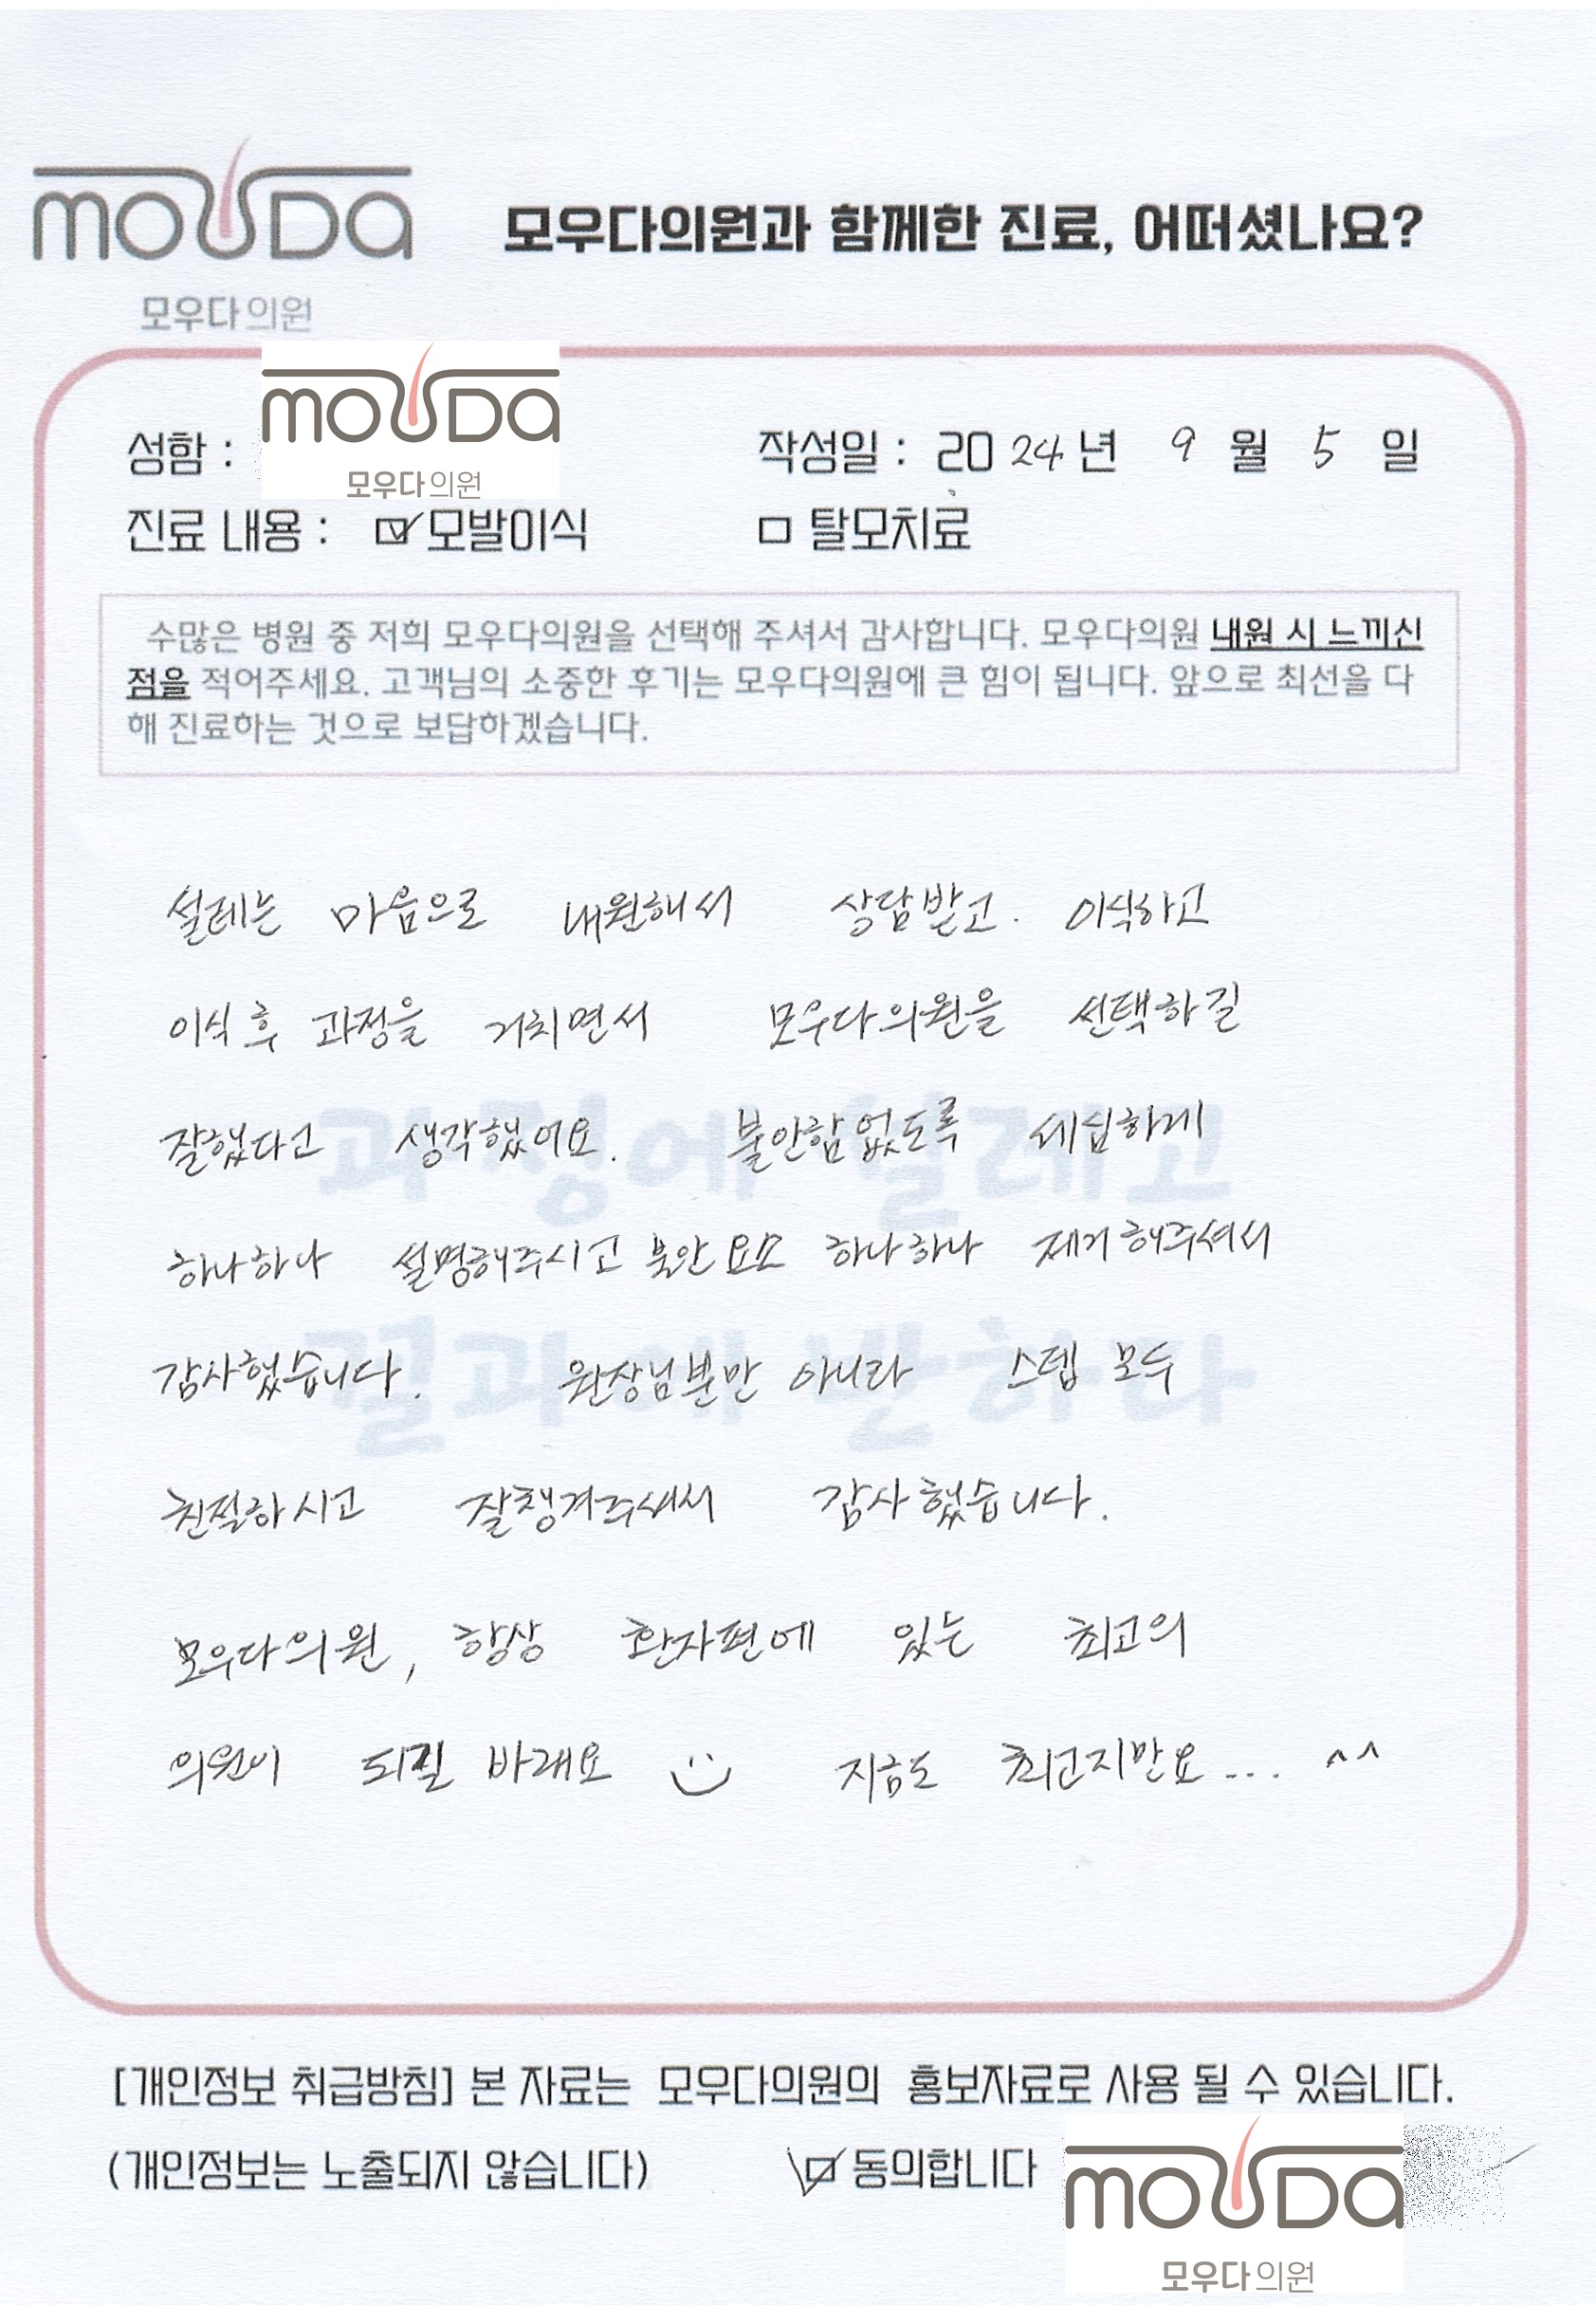 mouda
모우다의원
모우다의원과 함께한 진료, 어떠셨나요?
성함 :
mouda
모우다의원
작성일 : 2024년 9월 5일
진료 내용 : ☑모발이식 □ 탈모치료
수많은 병원 중 저희 모우다의원을 선택해 주셔서 감사합니다. 모우다의원 내원 시 느끼신
점을 적어주세요. 고객님의 소중한 후기는 모우다의원에 큰 힘이 됩니다. 앞으로 최선을 다
해 진료하는 것으로 보답하겠습니다.
설레는 마음으로 내원해서 상담받고. 이식하고
이식 후 과정을 거치면서 모우다의원을 선택하길
잘했다고 생각했어요. 불안함없도록 세심하게
과정에 설레고
하나하나 설명해주시고 불안요소 하나하나 제거해주셔서
결과에 반하다
감사했습니다. 원장님뿐만 아니라 스텝 모두
친절하시고 잘챙겨주셔서 감사했습니다.
모우다의원, 항상 환자편에 있는 최고의
의원이 되길 바래요 지금도 최고지만요... ^^
[개인정보 취급방침] 본 자료는 모우다의원의 홍보자료로 사용 될 수 있습니다.
(개인정보는 노출되지 않습니다) ☑동의합니다
mouda
모우다의원